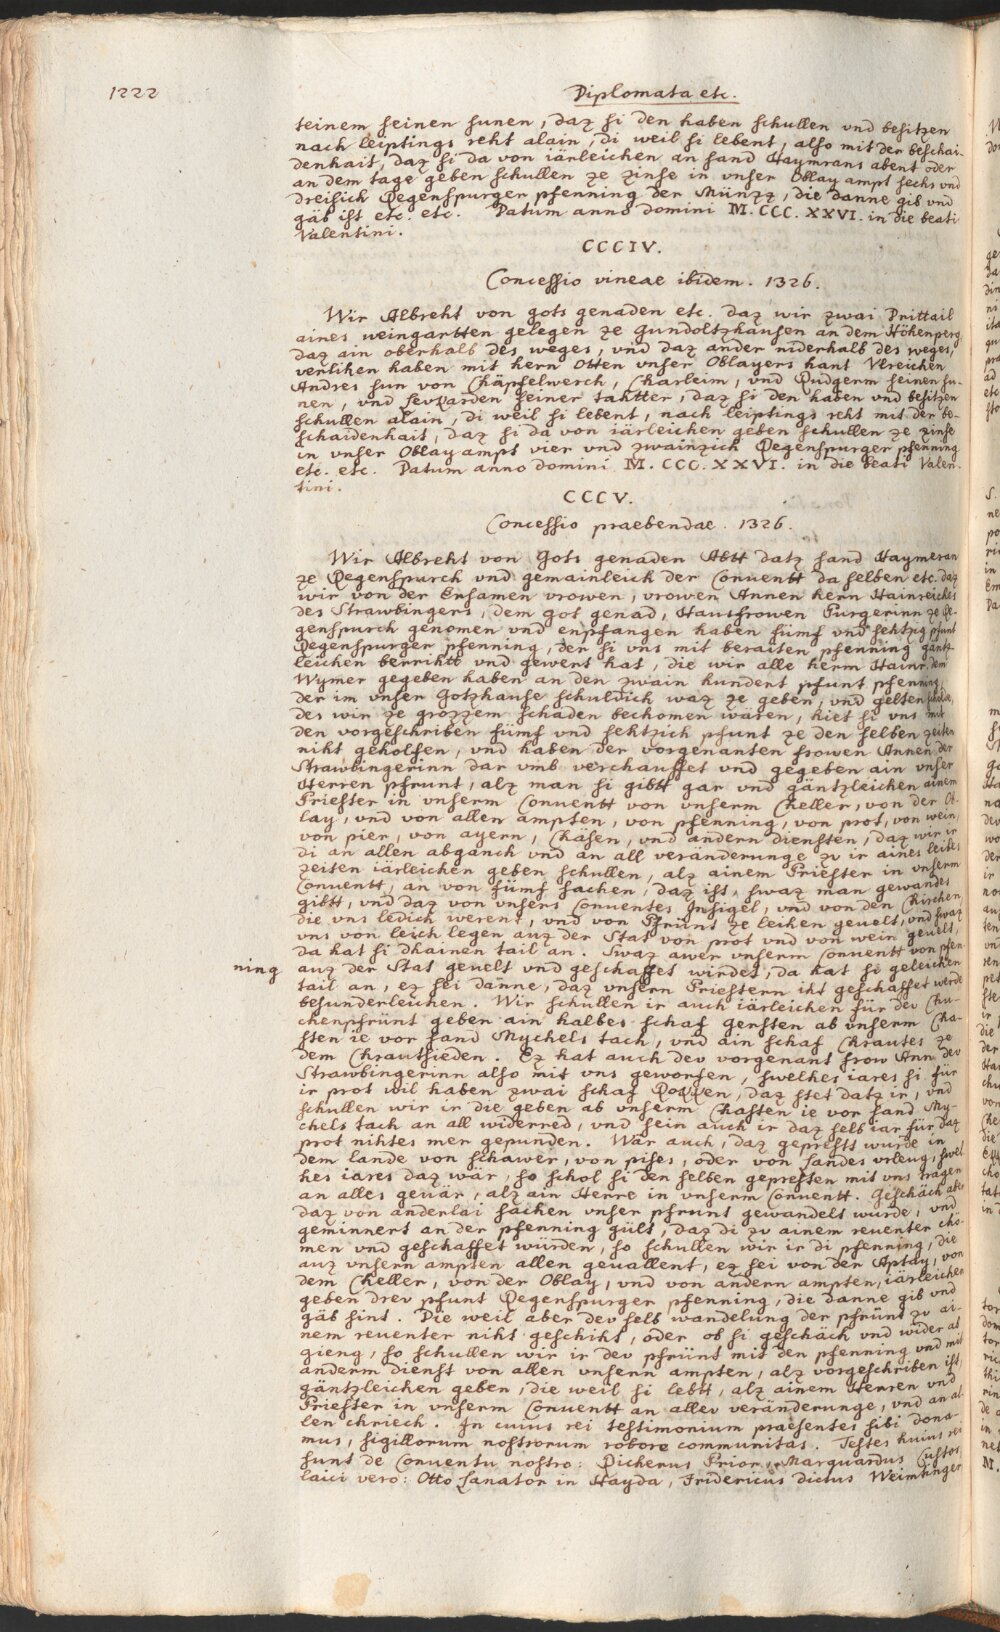 1222
Diplomata etc.
seinem seinen sunen, daz si den haben schullen vnd besitzen
nach leiptings reht alain, di weil si lebent, also mit der beschai-
denhait, daz si da von iarleichen an sand Haymrans abent oder
an dem tage geben schullen ze zinse in vnser Oblay ampt sechs vnd
dreisich Regenspurger phenning der Münzz, die danne gib vnd
gäb ist etc. etc. Datum anno domini M. CCC. XXVI. in die beati
Valentini.
CCCIV.
Concessio vineae ibidem. 1326.
Wir Albreht von gots genaden etc. daz wir zwai Drittail
aines weingartten gelegen ze Gundoltzhausen an dem Höhenperg,
daz ain oberhalb des weges, vnd daz ander niderhalb des weges,
verlihen haben mit hern Otten vnser Oblayers hant Vlreichen
Andres sun von Chäpfelwerch, Charleim, vnd Rudgerm seinen su-
nen, vnd Levkarden seiner tahtter, daz si den haben vnd besitzen
schullen alain, di weil si lebent, nach leiptings reht mit der be-
schaidenhait, daz si da von iärleichen geben schullen ze zinse
in vnser Oblay ampt vier vnd zwainzich Regenspurger phenning
etc. etc. Datum anno domini M. CCC. XXVI. in die beati Valen-
tini.
CCCV.
Concessio praebendae. 1326.
Wir Albreht von Gots genaden Abtt datz sand Haymeran
ze Regenspurch vnd gemainleich der Conuentt da selben etc. daz
wir von der Ersamen vrowen, vrowen Annen hern Hainreiches
des Strawbingers, dem got genad, Hausfrowen Purgerinn ze Re-
genspurch genomen vnd enpfangen haben fümf vnd sehtzig pfunt
Regenspurger pfenning, der si vns mit beraiten pfenning gäntz-
leichen berrihtt vnd gewert hat, die wir alle herrn Hainr. dem
Wymer gegeben haben an den zwain hundert pfunt pfenning,
der im vnser Gotzhause schuldich waz ze geben, vnd gelten scholten,
des wir ze grozzem schaden bechomen wären, hiet si vns mit
den vorgeschriben fümf vnd sehtzich pfunt ze den selben zeiten
niht geholfen, vnd haben der vorgenanten frowen Annen der
Strawbingerinn dar vmb verchauffet vnd gegeben ain vnser
Herren pfrunt, alz man si gibtt gar vnd gäntzleichen ainem
Priester in vnserm Conuentt von vnserm Cheller, von der Ob-
lay, vnd von allen ampten, von pfenning, von prot, von wein,
von pier, von ayern, Chäsen, vnd andern diensten, daz wir ir
di an allen abganch vnd an all veränderunge zu ir aines leibes
zeiten iärleichen geben schullen, alz ainem Priester in vnserm
Conuentt, an von fümf sachen, daz ist, swaz man gewandes
gibtt, vnd daz von vnsers Conuentes Insigel, vnd von den Kirchen,
die vns ledich werent, vnd von Pfrünt ze leihen geuelt, vnd swaz
vns von leich legen auz der Stat von prot vnd von wein geuelt,
da hat si dhainen tail an. Swaz awer vnserm Conuentt von pfen-
ning auz der Stat geuelt vnd geschaffet wirdet, da hat si geleichen
tail an, ez sei danne, daz vnsern Priestern iht geschaffet werde
besunderleichen. Wir schullen ir auch iärleichen für dev Chu-
chenpfrünt geben ain halbes schaf gersten ab vnserm Cha-
sten ie vor sand Mychels tach, vnd ain schaf Chrautes ze
dem Chrautsieden. Ez hat auch dev vorgenant frow Ann dev
Strawbingerinn also mit vns geworfen, swelhes iares si für
ir prot wil haben zwai schaf Rokken, daz stet datz ir, vnd
schullen wir ir die geben ab vnserm Chasten ie vor sand My-
chels tach an all widerred, vnd sein auch ir daz selb iar für daz
prot nihtes mer gepunden. Wär auch, daz geprests wurde in
dem lande von schawer, von pises, oder von landes vrleug, swel-
hes iares daz wär, so schol si den selben gepresten mit vns tragen
an alles geuär, alz ain Herre in vnserm Conuentt. Geschäch aber
daz von anderlai sachen vnser pfrunt gewandelt wurde, vnd
geminnert an der pfenning gült, daz di zu ainem reuenter chö-
men vnd geschaffet würden, so schullen wir ir di pfenning, die
auz vnsern ampten allen geuallent, ez sei von der Aptay, von
dem Cheller, von der Oblay, vnd von andern ampten, iärleichen
geben drev pfunt Regenspurger pfenning, die danne gib vnd
gäb sint. Die weil aber dev selb wandelung der pfrünt zu ai-
nem reuenter niht geschiht, oder ob si geschäch vnd wider ab
gieng, so schullen wir ir dev pfrünt mit den pfenning vnd mit
anderm dienst von allen vnsern ampten, alz vorgeschriben ist,
gäntzleichen geben, die weil si lebtt, alz ainem Herren vnd
Priester in vnserm Conuentt an allev veränderunge, vnd an al-
len chriech. In cuius rei testimonium praesentes sibi dona-
mus, sigillorum nostrorum robore communitas. Testes huius rei
sunt de Conuentu nostro: Dicherus Prior, Marquardus Custos,
laici vero: Otto Sanator in Hayda, Fridericus dictus Weimtinger